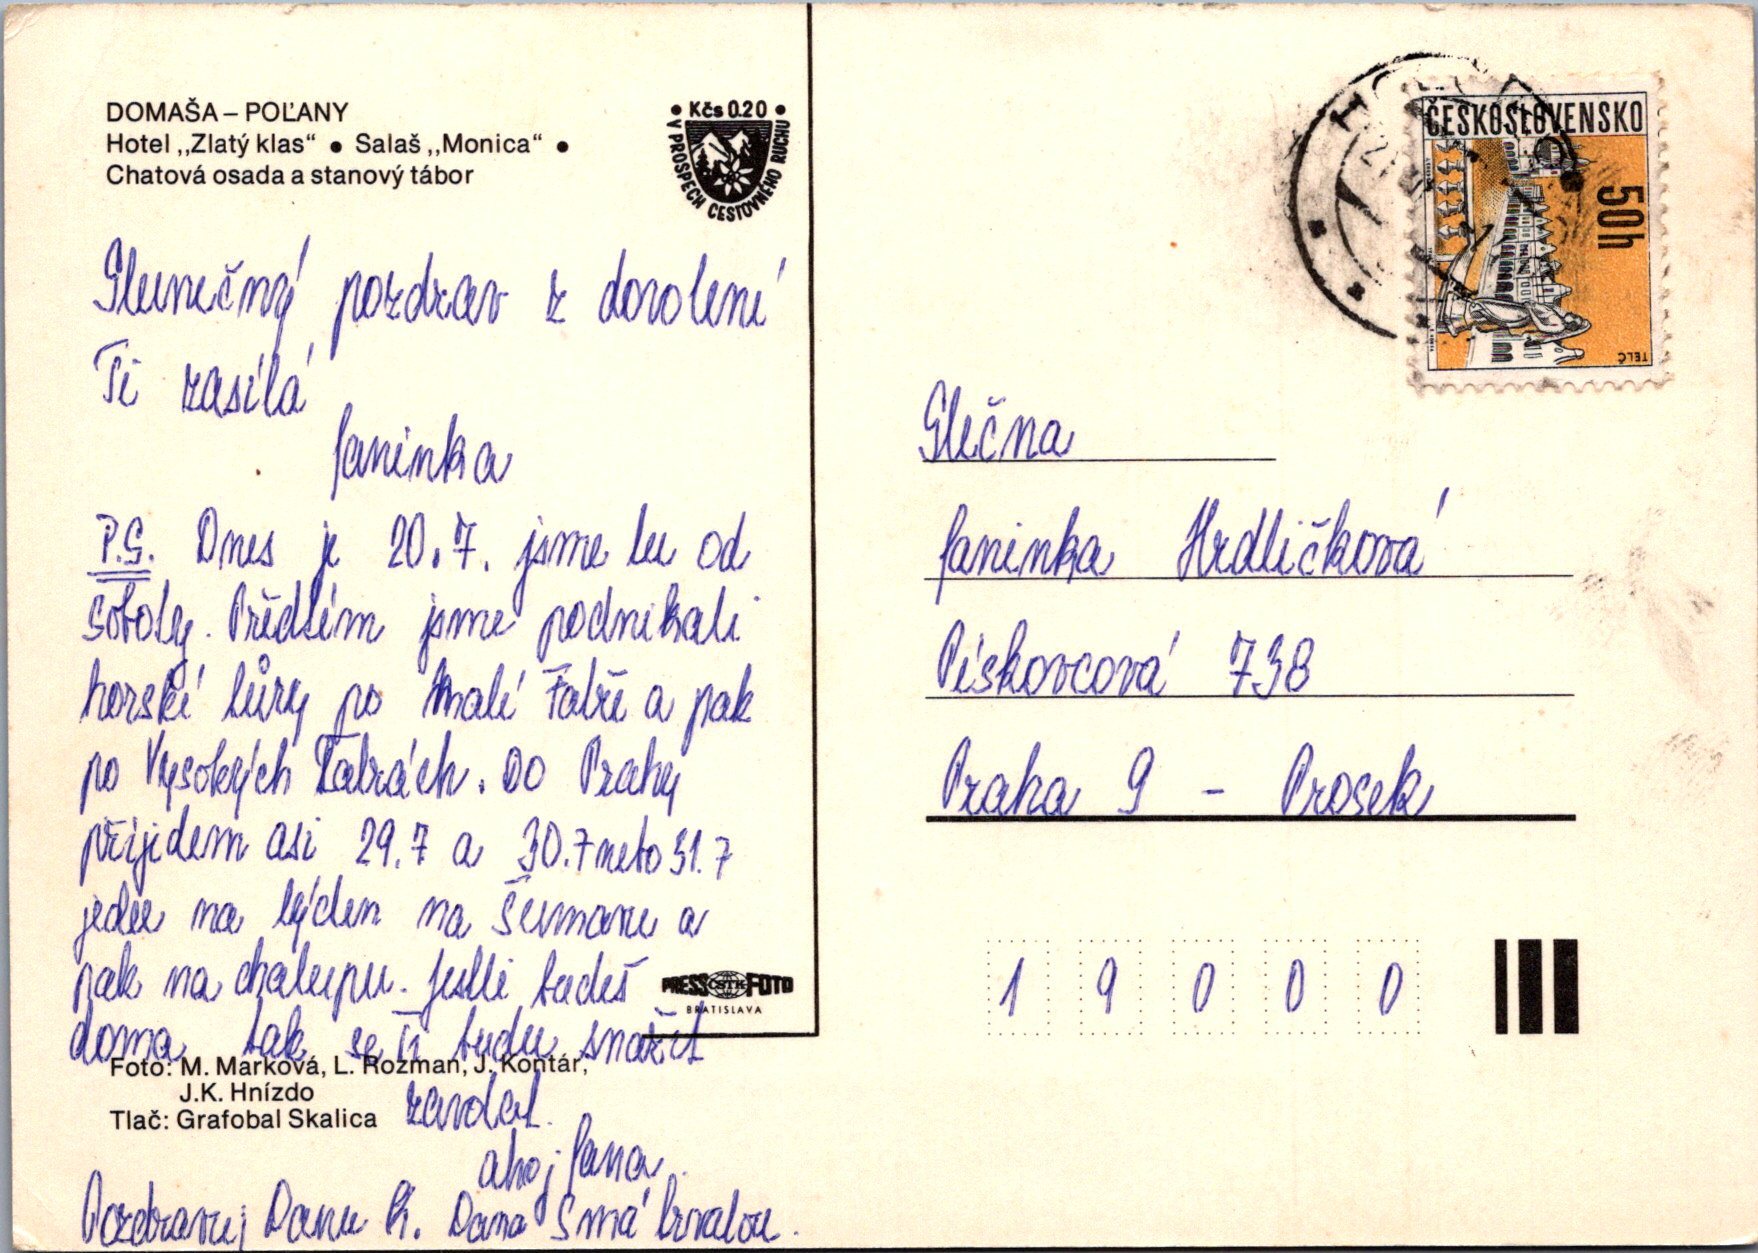 DOMAŠA – POĽANY
Hotel „Zlatý klas“ ● Salaš „Monica“ ●
Chatová osada a stanový tábor
• Kčs 0.20 •
V PROSPECH CESTOVNÉHO RUCHU
Slunečný pozdrav z dovolené
Ti zasílá
Janinka
P.S. Dnes je 20.7. jsme tu od
soboty. Předtím jsme podnikali
horské túry po Malé Fatře a pak
po Vysokých Tatrách. Do Prahy
přijedem asi 29.7 a 30.7 nebo 31.7
jedu na týden na Šumavu a
pak na chalupu. Jestli budeš
doma, tak se Ti budu snažit
zavolat.
ahoj Jana.
Pozdravuj Danu K. Dana S má trvalou.
PRESS ČSTK FOTO
BRATISLAVA
Foto: M. Marková, L. Rozman, J. Kontár,
J.K. Hnízdo
Tlač: Grafobal Skalica
ČESKOSLOVENSKO
50h
TELČ
Slečna
Janinka Hrdličková
Pískovcová 738
Praha 9 - Prosek
19000